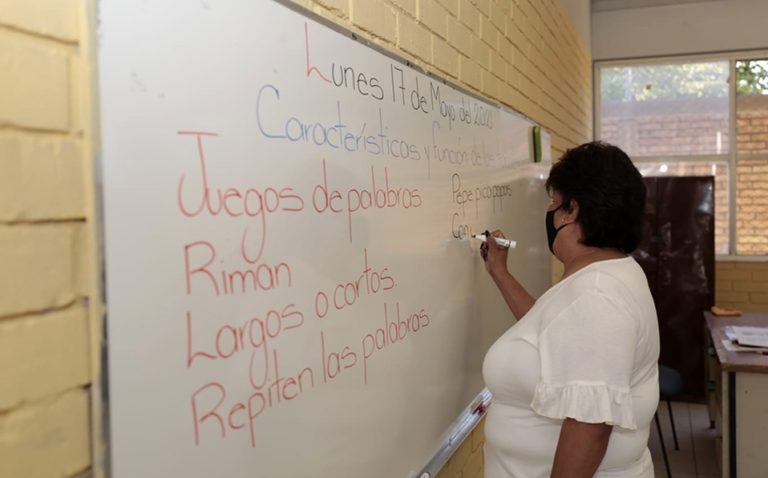 Lunes 17 de Mayo del 2021
Características y función de los
Juegos de palabras
Riman
Largos o cortos.
Repiten las palabras
Pepe pica papas
Con